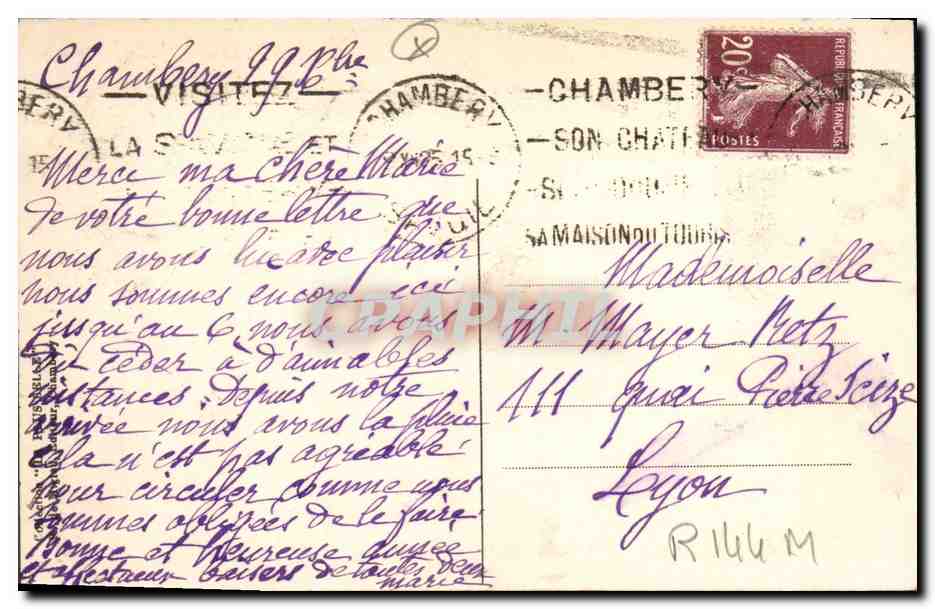 Chambery 29 Xbre
VISITEZ
LA SAVOIE ET
CHAMBERY
SON CHATEAU
SA MAISON DU TOURISME
CHAMBERY
SAVOIE
REPUBLIQUE FRANCAISE
20c
POSTES
Merci ma chère Marie
de votre bonne lettre que
nous avons lu avec plaisir
nous sommes encore ici
jusqu'au 6 nous avons
céder à d'aimables
instances. Depuis notre
arrivée nous avons la pluie
cela n'est pas agréable
pour circuler comme nous
sommes obligées de le faire
Bonne et heureuse année
et affectueux baisers de toutes deux
marie
Mademoiselle
M. Mayer Retz
111 quai Pierre Scize
Lyon
R144M
CPAPHIL